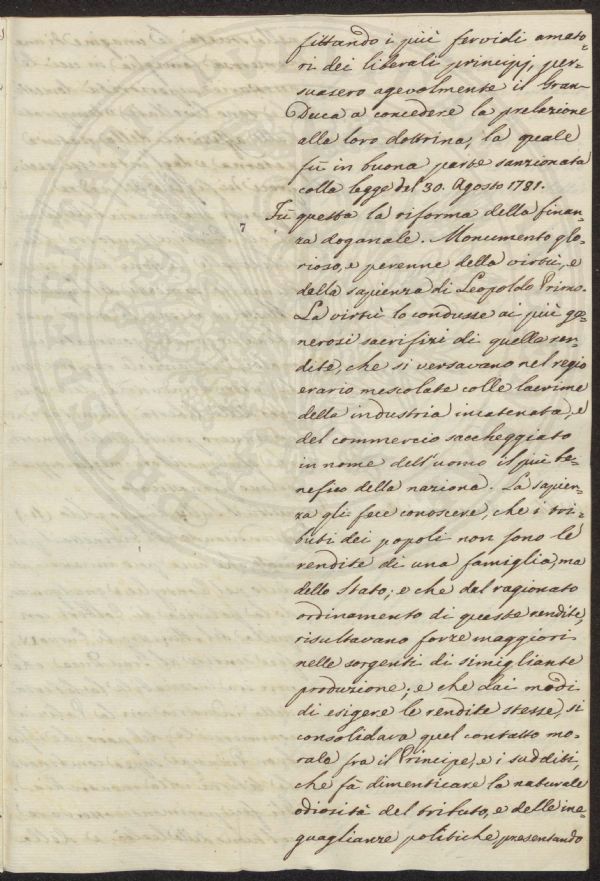 fittando i più fervidi amato-
ri dei liberali principj, per-
suasero agevolmente il Gran-
Duca a concedere la prelazione
alla loro dottrina, la quale
fù in buona parte sanzionata
colla legge del 30. Agosto 1781.
7 Fù questa la riforma della finan-
za doganale. Monumento glo-
rioso, e perenne della virtù, e
della sapienza di Leopoldo Primo.
La virtù lo condusse ai più ge-
nerosi sacrifizi di quelle ren-
dite, che si versavano nel regio
erario mescolate colle lacrime
della industria incatenata, e
del commercio saccheggiato
in nome dell'uomo il più be-
nefico della nazione. La sapien-
za gli fece conoscere, che i tri-
buti dei popoli non sono le
rendite di una famiglia, ma
dello Stato; e che dal ragionato
ordinamento di queste rendite,
risultavano forze maggiori
nelle sorgenti di simigliante
produzione; e che dai modi
di esigere le rendite stesse, si
consolidava quel contatto mo-
rale fra il Principe, e i sudditi,
che fà dimenticare la naturale
odiosità del tributo, e delle ine-
guaglianze politiche, presentando